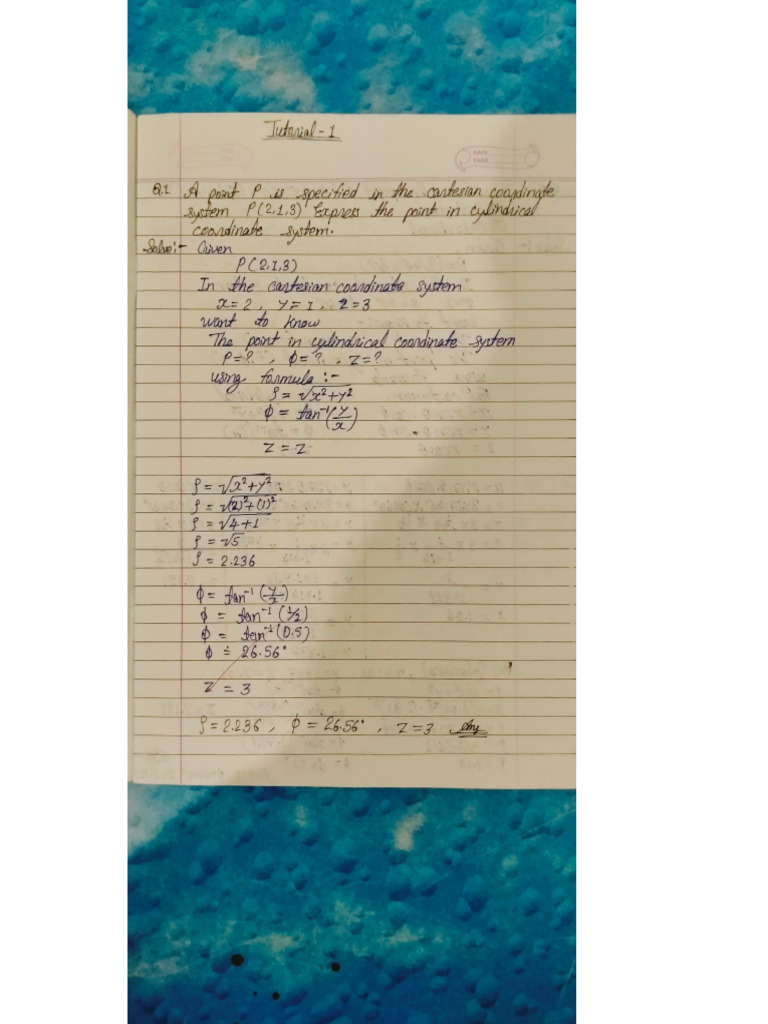 Tutorial-1
DATE
PAGE
Q.1 A point P is specified in the cartesian coordinate
system P(2,1,3) Express the point in cylindrical
coordinate system.
Solve:- Given
P(2,1,3)
In the cartesian coordinate system
x=2, y=1, z=3
want to know
The point in cylindrical coordinate system
ρ=?, ϕ=?, z=?
using formula :-
ρ = √x²+y²
ϕ = tan⁻¹(y/x)
z = z
ρ = √x²+y²
ρ = √(2)²+(1)²
ρ = √4+1
ρ = √5
ρ = 2.236
ϕ = tan⁻¹(y/x)
ϕ = tan⁻¹(1/2)
ϕ = tan⁻¹(0.5)
ϕ = 26.56°
z = 3
ρ=2.236, ϕ=26.56°, z=3 Ans